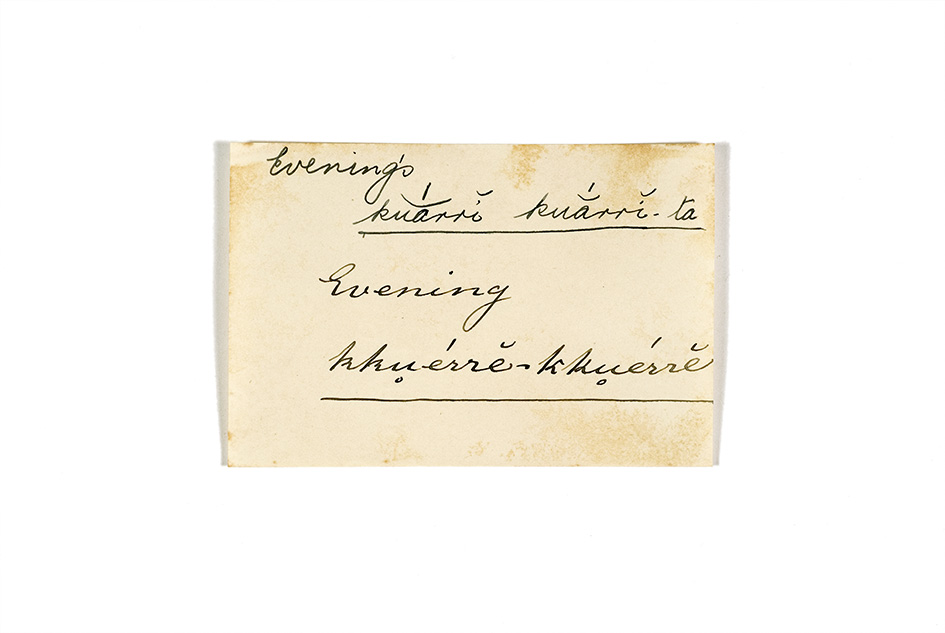 Evening's
kŭárrĭ kŭárrĭ-ta
Evening
kkụ̆érrĕ-kkụérrĕ